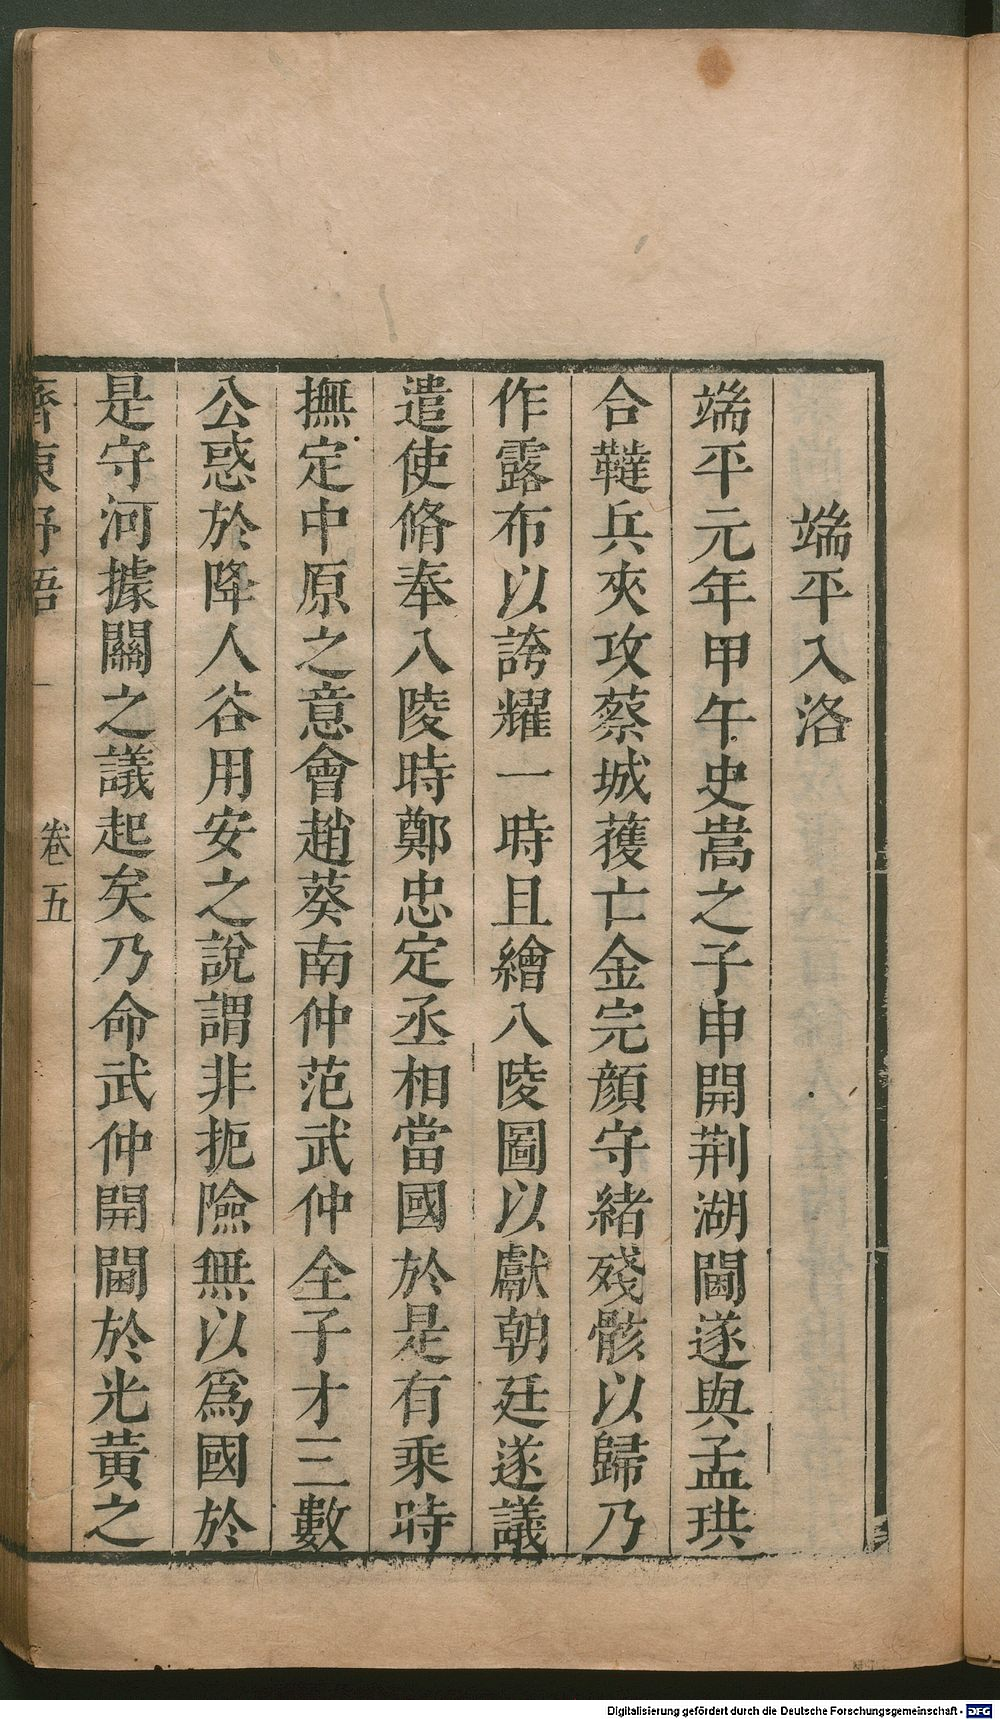 端平入洛
端平元年甲午史嵩之子申開荆湖閫遂與孟珙
合韃兵夾攻蔡城獲亡金完顔守緒殘骸以歸乃
作露布以誇耀一時且繪八陵圖以獻朝廷遂議
遣使脩奉八陵時鄭忠定丞相當國於是有乘時
撫定中原之意會趙葵南仲范武仲全子才三數
公惑於降人谷用安之說謂非扼險無以爲國於
是守河據關之議起矣乃命武仲開閫於光黄之
齊東野語
卷五
Digitalisierung gefördert durch die Deutsche Forschungsgemeinschaft - DFG